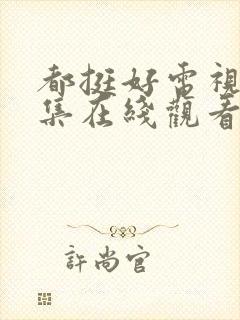 都挺好電視
集在綫觀看
許尚官